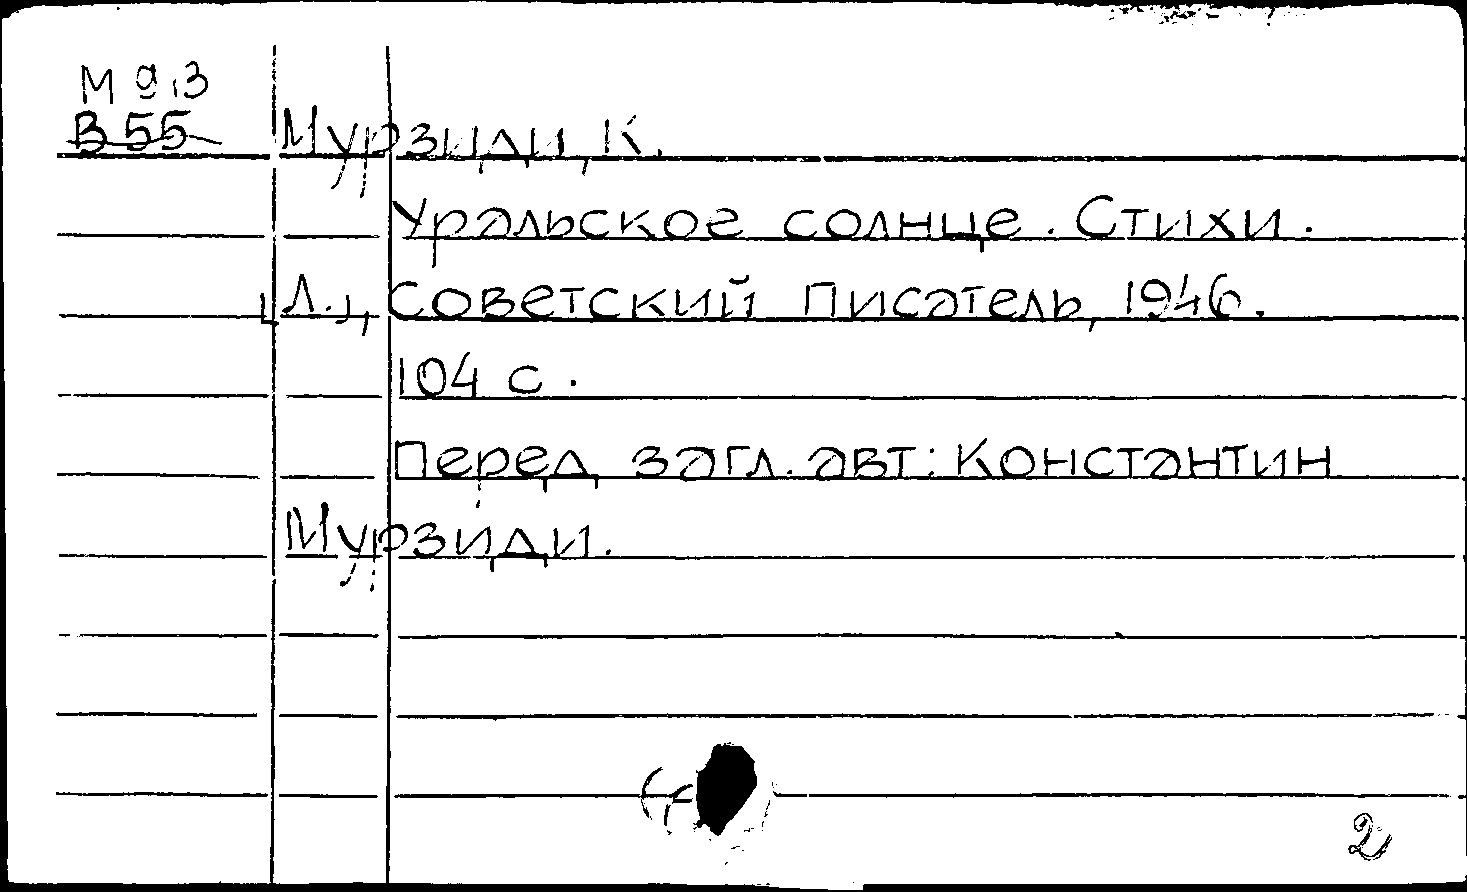 М 9.3
В 55
Мурзиди, К.
Уральское солнце. Стихи.
[Л.], Советский писатель, 1946.
104 с.
Перед загл. авт: Константин
Мурзиди.
2